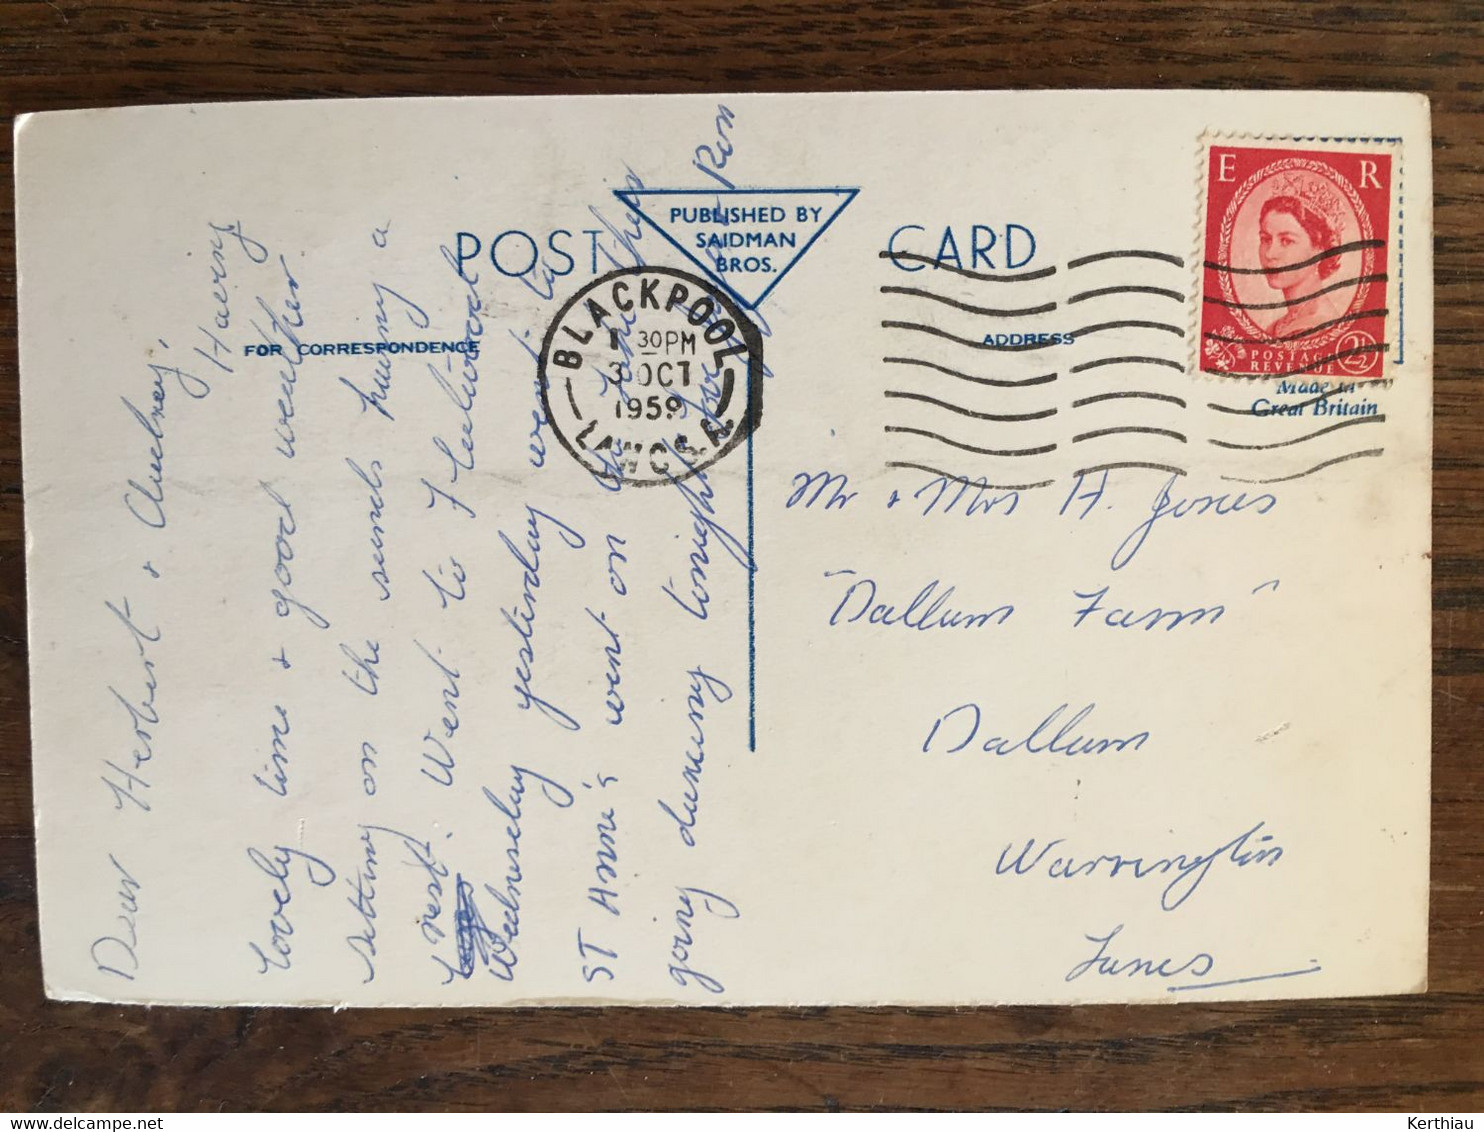 POST CARD
PUBLISHED BY
SAIDMAN
BROS.
FOR CORRESPONDENCE
ADDRESS
E R
POSTAGE
REVENUE 2½
Made in
Great Britain
BLACKPOOL
1 30PM
3 OCT
1959
LANCS.
Dear Herbert + Audrey,
Having
lovely time + good weather
sitting on the sands having a
rest. Went to Fleetwood
Wednesday yesterday went to
ST Anne's went on to
going dancing tonight
Ron
Mr + Mrs H. Jones
"Dallum Farm"
Dallum
Warrington
Lancs
Kerthiau